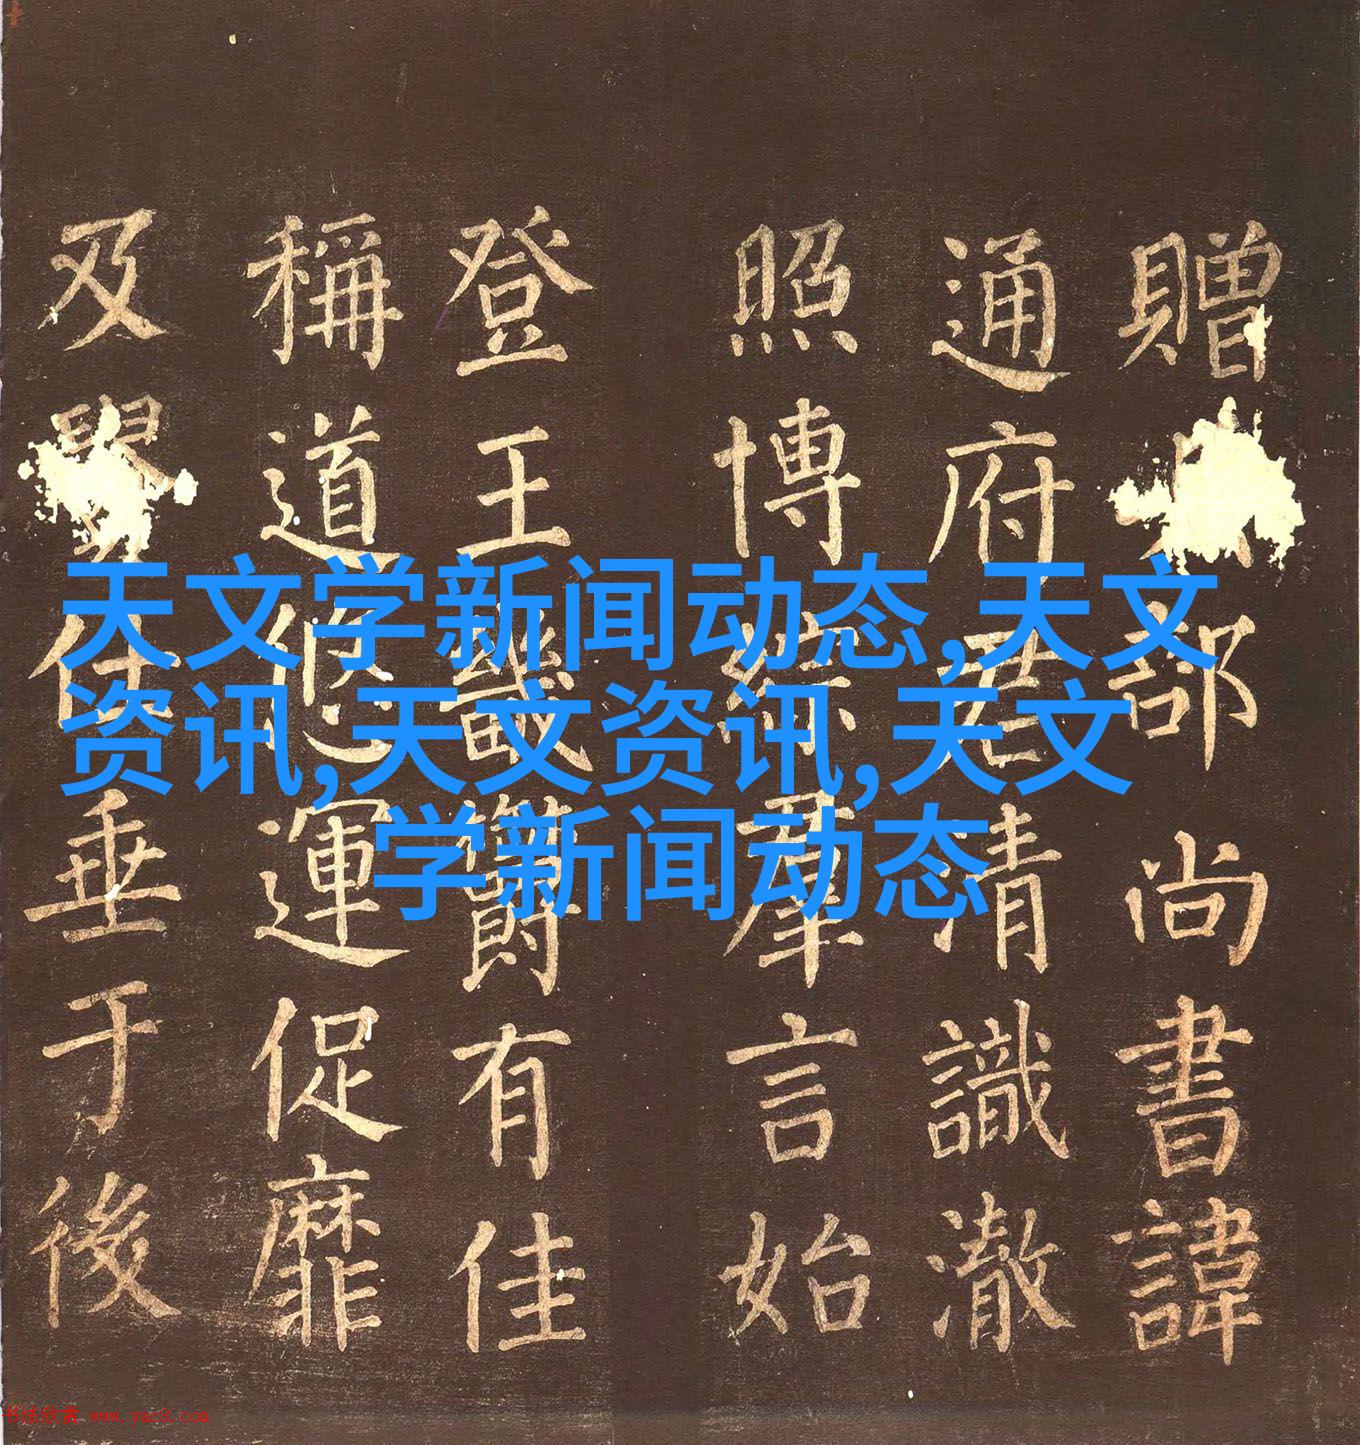 贈部尚書諱
通府君清識澈
照博綜羣言始
登王畿有佳
稱道悠運促靡
及仕垂于後
天文学新闻动态,天文
资讯,天文资讯,天文
学新闻动态
书法欣赏 www.yac8.com